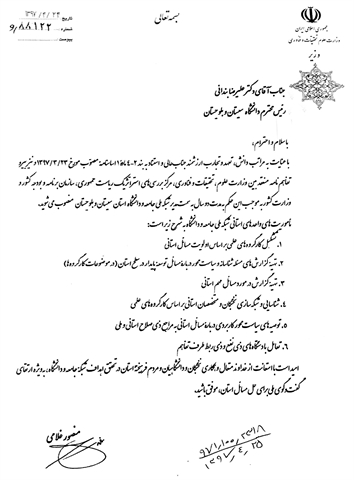 بسمه تعالی
جمهوری اسلامی ایران
وزارت علوم، تحقیقات و فناوری
وزیر
تاریخ ۱۳۹۷/۴/۲۴
شماره ۹/۸۸۱۲۲
پیوست
جناب آقای دکتر علیرضا بندانی
رئیس محترم دانشگاه سیستان و بلوچستان
با سلام و احترام؛
با عنایت به مراتب دانش، تعهد و تجارب ارزشمند جنابعالی و به استناد بند ۲-۴ اساسنامه مصوب مورخ ۱۳۹۷/۳/۲۳ و نیز پیرو
تفاهم نامه منعقده بین وزارت علوم، تحقیقات و فناوری، مرکز بررسی‌های استراتژیک ریاست جمهوری، سازمان برنامه و بودجه کشور و
وزارت کشور به موجب این حکم به مدت دو سال به سمت دبیر شبکه ملی جامعه و دانشگاه استان سیستان و بلوچستان منصوب می شوید.
مأموریت های واحدهای استانی شبکه ملی جامعه و دانشگاه به شرح زیر است:
۱. تشکیل کارگروه های علمی بر اساس اولویت مسائل استانی
۲. تهیه گزارش های مسئله شناسانه و سیاست محور درباره مسائل توسعه پایدار در سطح استان (در موضوعات کارگروه ها)
۳. تهیه گزارش در مورد مسائل مهم استانی
۴. شناسایی و شبکه سازی نخبگان و متخصصان استانی بر اساس کارگروه های علمی
۵. توصیه های سیاست محور کاربردی درباره مسائل استانی به مراجع ذی صلاح استانی و ملی
۶. تعامل با دستگاه های ذی نفع و ذی ربط طرف تفاهم
امید است با استعانت از خداوند متعال و همکاری نخبگان و دانشگاهیان و مردم فرهیخته استان در تحقق اهداف شبکه جامعه و دانشگاه، به ویژه ارتقای
گفت و گوی ملی برای حل مسائل استان، موفق باشید.
منصور غلامی
۱۳۹۷/۴/۲۵